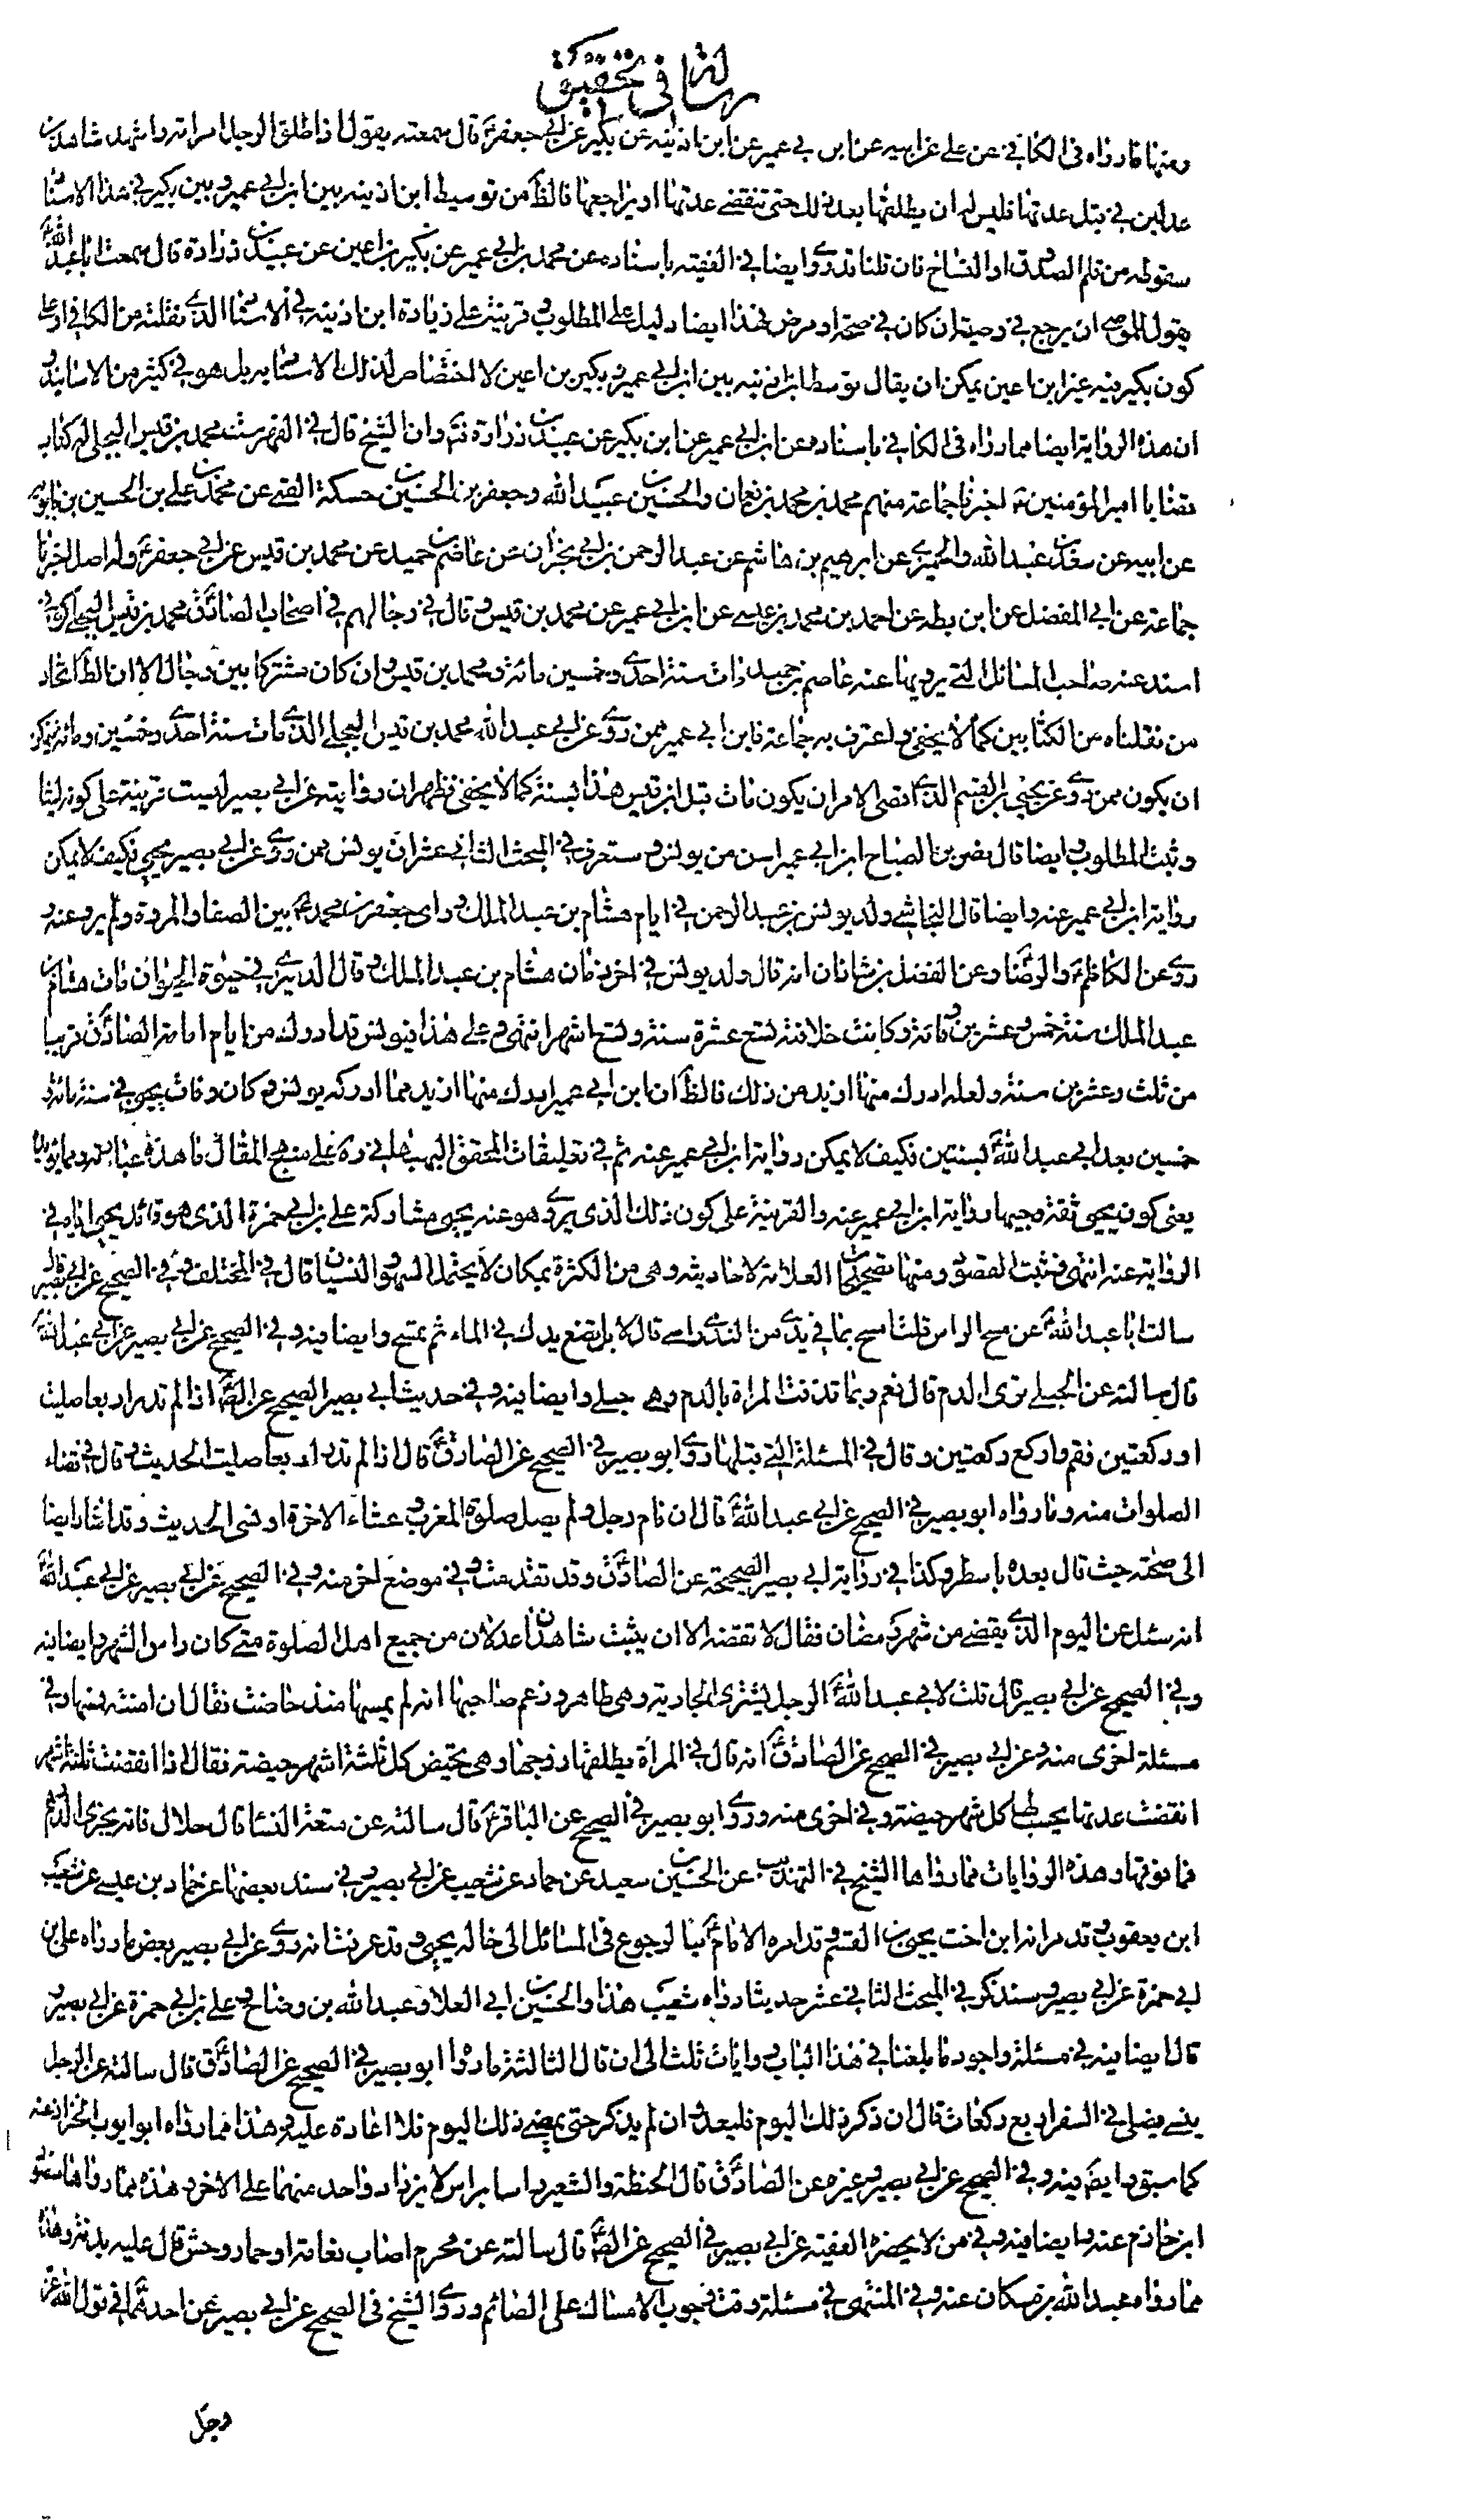 رسالة في تحقيق
ومنها ما رواه في الكافي عن علي عن ابيه عن ابن ابي عمير عن ابن اذينه عن بكير عن ابي جعفر ع قال سمعته يقول اذا طلق الرجل امراته واشهد شاهدين
عدلين في قبل عدتها فليس له ان يطلقها بعد ذلك حتى تنقضي عدتها او يراجعها فالظ من توسيط ابن اذينه بين ابن ابي عمير وبين بكير في هذا الاسناد
سقوطه من قلم الصدوق او النساخ فان قلنا قد روى ايضا في الفقيه باسناده عن محمد بن ابي عمير عن بكير بن اعين عن عبيد بن زرارة قال سمعت ابا عبد الله ع
يقول للموصي ان يرجع في وصيته ان كان في صحة او مرض فهذا ايضا دليل على المطلوب وقرينة على زيادة ابن اذينه في الاسناد الذي نقلته من الكافي او على
كون بكير فيه غير ابن اعين يمكن ان يقال توسط ابن اذينه بين ابن ابي عمير وبكير بن اعين لا اختصاص لذلك الاسناد به بل هو في كثير من الاسانيد و
ان هذه الرواية ايضا مما رواه في الكافي باسناده عن ابن ابي عمير عن ابن بكير عن عبيد بن زرارة ثم وان الشيخ قال في الفهرست محمد بن قيس البجلي له كتاب
قضايا امير المؤمنين ع اخبرنا جماعة منهم محمد بن محمد بن نعمان والحسين بن عبيد الله وجعفر بن الحسين بن حسكة القمي عن محمد بن علي بن الحسين بن بابويه
عن ابيه عن سعد بن عبد الله والحميري عن ابرهيم بن هاشم عن عبد الرحمن بن ابي نجران عن عاصم بن حميد عن محمد بن قيس عن ابي جعفر ع وله اصل اخبرنا
جماعة عن ابي المفضل عن ابن بطه عن احمد بن محمد بن عيسى عن ابن ابي عمير عن محمد بن قيس وقال في رجالهم في اصحاب الصادق ع محمد بن قيس البجلي كوفي
اسند عنه صاحب المسائل التي يرويها عنه عاصم بن حميد مات سنة احدى وخمسين مائة ومحمد بن قيس وان كان مشتركا بين رجال الا ان الظ اتحاد
من نقلناه من الكتابين كما لا يخفى واعترف به جماعة فابن ابي عمير ممن روى عن ابي عبد الله محمد بن قيس البجلي الذي مات سنة احدى وخمسين ومائة فيمكن
ان يكون ممن روى عن يحيى بن القسم الذي اقصى الامر ان يكون مات قبل ابن قيس هذا بسنة كما لا يخفى فظهر ان روايته عن ابي بصير ليست قرينة على كونه ليثا
وثبت المطلوب وايضا قال نصر بن الصباح ابن ابي عمير اسن من يونس وستعرف في المبحث الثاني عشر ان يونس ممن روى عن ابي بصير يحيى فكيف لا يمكن
رواية ابن ابي عمير عنه وايضا قال النجاشي ولد يونس بن عبد الرحمن في ايام هشام بن عبد الملك وراى جعفر بن محمد ع بين الصفا والمروة ولم يرو عنه و
روى عن الكاظم ع والرضا ع وعن الفضل بن شاذان انه قال ولد يونس في اخر زمان هشام بن عبد الملك وقال الدميري في حيوة الحيوان مات هشام بن
عبد الملك سنة خمس وعشرين ومائة وكانت خلافته تسع عشرة سنة وتسع اشهر انتهى وعلى هذا فيونس قد ادرك من ايام امامة الصادق ع قريبا
من ثلث وعشرين سنة ولعله ادرك منها ازيد من ذلك فالظ ان ابن ابي عمير ادرك منها ازيد مما ادركه يونس وكان وفات يحيى في سنة مائة و
خمسين بعد ابي عبد الله ع بسنتين فكيف لا يمكن رواية ابن ابي عمير عنه ثم في تعليقات المحقق البهبهاني ره على منهج المقال ما هذه عبارته
يعني كون يحيى ثقة وجيها رواية ابن ابي عمير عنه والقرينة على كون ذلك الذي يروى هو عنه يحيى مشاركة علي بن ابي حمزة الذي هو قائد يحيى اياه في
الرواية عنه انتهى فثبت المقصود ومنها تصحيحات العلامة لاحاديثه وهي من الكثرة بمكان لا يحتمل السهو والنسيان قال في المختلف وفي الصحيح عن ابي بصير قال
سالت ابا عبد الله ع عن مسح الراس قلت امسح بما في يدي من الندى راسي قال لا بل تضع يدك في الماء ثم تمسح وايضا فيه وفي الصحيح عن ابي بصير عن ابي عبد الله ع
قال سالته عن الحبلى ترى الدم قال نعم ربما قذفت المراة بالدم وهي حبلى وايضا فيه وفي حديث ابي بصير الصحيح عن الص ع اذا لم تدر اربعا صليت
او ركعتين فقم واركع ركعتين وقال في المسئلة التي قبلها روى ابو بصير في الصحيح عن الصادق ع قال اذا لم تدر اربعا صليت الحديث وقال في قضاء
الصلوات منه وما رواه ابو بصير في الصحيح عن ابي عبد الله ع قال ان نام رجل ولم يصل صلوة المغرب وعشاء الاخرة او نسى الحديث وقد اشار ايضا
الى صحته حيث قال بعده باسطر وكذا في رواية ابي بصير الصحيحة عن الصادق ع وقد تقدمت وفي موضع اخر منه وفي الصحيح عن ابي بصير عن ابي عبد الله ع
انه سئل عن اليوم الذي يقضى من شهر رمضان فقال لا تقضه الا ان يثبت شاهدان عدلان من جميع اهل الصلوة متى كان راس الشهر وايضا فيه
وفي الصحيح عن ابي بصير قال قلت لابي عبد الله ع الرجل يشترى الجارية وهي طاهر وزعم صاحبها انه لم يمسها منذ حاضت فقال ان امنته فمسها وفي
مسئلة اخرى منه وعن ابي بصير في الصحيح عن الصادق ع انه قال في المراة يطلقها زوجها وهي تحيض كل ثلثة اشهر حيضة فقال اذا انقضت ثلثة اشهر
انقضت عدتها يحسب لها كل شهر حيضة وفي اخرى منه وروى ابو بصير في الصحيح عن الباقر ع قال سالته عن متعة النساء قال حلال فانه يجزى الدرهم
فما فوقها وهذه الروايات مما رواها الشيخ في التهذيب عن الحسين بن سعيد عن حماد عن شعيب عن ابي بصير وفي سند بعضها عن حماد بن عيسى عن شعيب
ابن يعقوب وقد مر انه ابن اخت يحيى بن القسم وقد امره الامام ع بالرجوع في المسائل الى خاله يحيى وقد عرفت انه روى عن ابي بصير بعض ما رواه علي بن
ابي حمزة عن ابي بصير وسنذكر في المبحث الثاني عشر حديثا رواه شعيب هذا والحسين بن ابي العلاء وعبد الله بن وضاح وعلي بن ابي حمزة عن ابي بصير و
قال ايضا فيه في مسئلة واجود ما بلغنا في هذا الباب روايات ثلث الى ان قال الثالثة ما رواه ابو بصير في الصحيح عن الصادق ع قال سالته عن الرجل
ينسى فيصلي في السفر اربع ركعات قال ان ذكر في ذلك اليوم فليعد وان لم يذكر حتى يمضي ذلك اليوم فلا اعادة عليه وهذا مما رواه ابو ايوب الخزاز عنه
كما سبق وايض فيه وفي الصحيح عن ابي بصير وغيره عن الصادق ع قال الحنطة والشعير راسا براس لا يزاد واحد منهما على الاخر وهذه مما رواها
ابن حازم عنه وايضا فيه وفي من لا يحضره الفقيه عن ابي بصير في الصحيح عن الص ع قال سالته عن محرم اصاب نعامة او حمار وحش قال عليه بدنة وهذا
مما رواه عبد الله بن مسكان عنه وفي المنتهى في مسئلة وقت وجوب الامساك على الصائم وروى الشيخ في الصحيح عن ابي بصير عن احدهما ع في قول الله عز
وجل